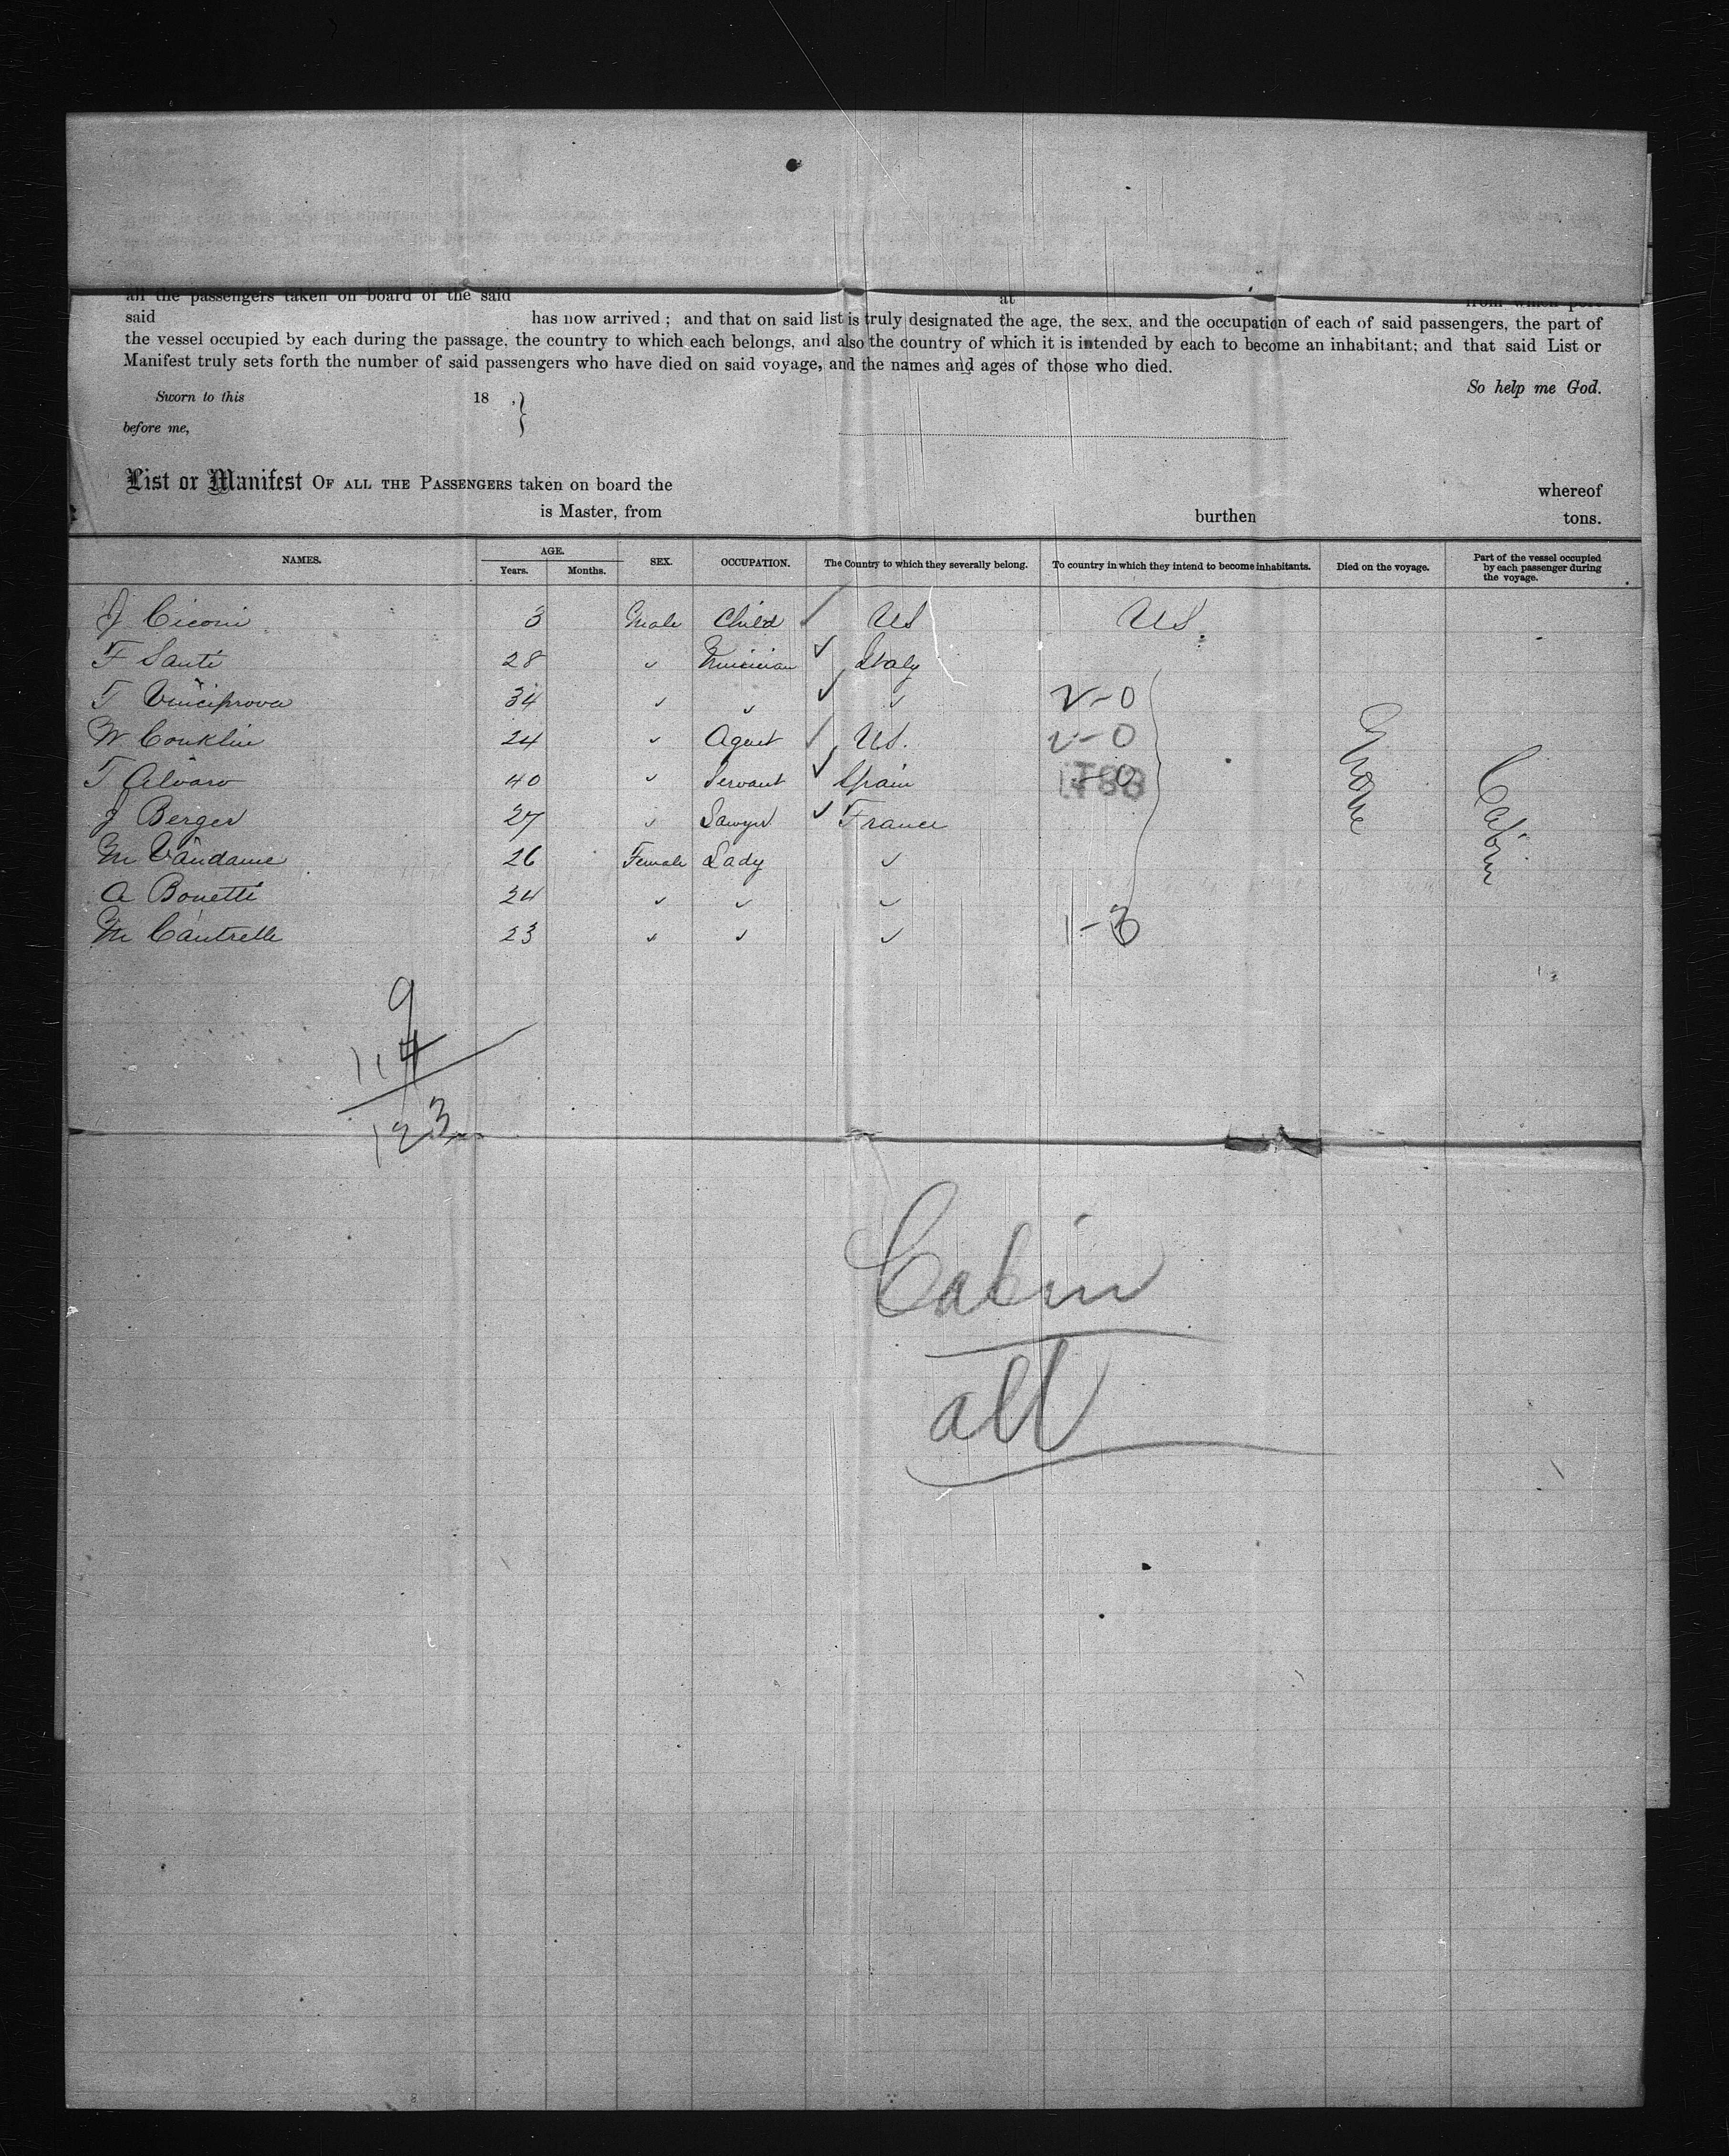 all the passengers taken on board of the said at from which port
said has now arrived ; and that on said list is truly designated the age, the sex, and the occupation of each of said passengers, the part of
the vessel occupied by each during the passage, the country to which each belongs, and also the country of which it is intended by each to become an inhabitant; and that said List or
Manifest truly sets forth the number of said passengers who have died on said voyage, and the names and ages of those who died.
So help me God.
Sworn to this 18 ,}
before me,
List or Manifest OF ALL THE PASSENGERS taken on board the whereof
is Master, from burthen tons.
NAMES. AGE. Years. Months. SEX. OCCUPATION. The Country to which they severally belong. To country in which they intend to become inhabitants. Died on the voyage. Part of the vessel occupied by each passenger during the voyage.
J Ciconi 3 Male Child ✓ US US.
F Santi 28 " Musician ✓ Italy
T Vinciprova 34 " " ✓ " 2-0
W Conklin 24 " Agent ✓ US. 2-0
T Alvaro 40 " Servant ✓ Spain
J Berger 27 " Sawyer ✓ France
M Vandame 26 Female Lady "
A Bonetti 24 " " "
M Cantrelle 23 " " " 1-3
None
Cabin
9
114
123
Cabin
all